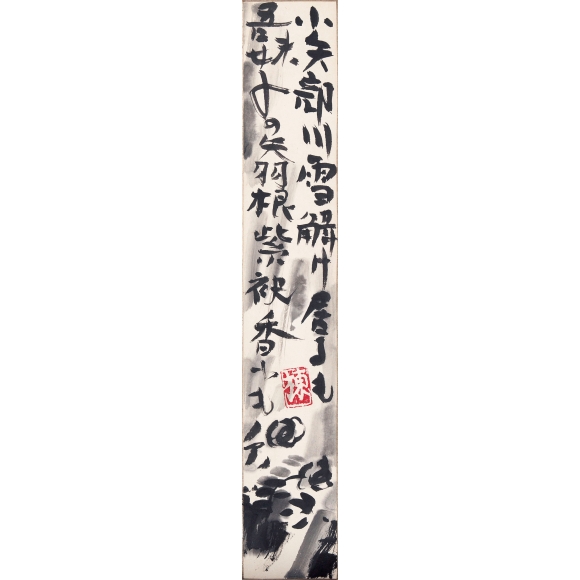 小矢部川雪解け居りも
吾妹子の矢羽根紫袂香
棟